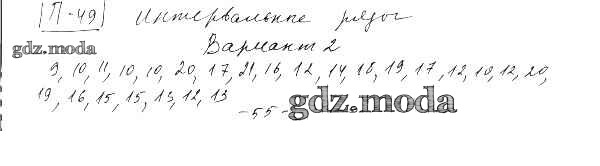 П-49 Интервальные ряды
gdz.moda Вариант 2
9, 10, 11, 10, 10, 20, 17, 21, 16, 12, 14, 18, 19, 17, 12, 10, 12, 20,
19, 16, 15, 15, 13, 12, 13
-55- gdz.moda